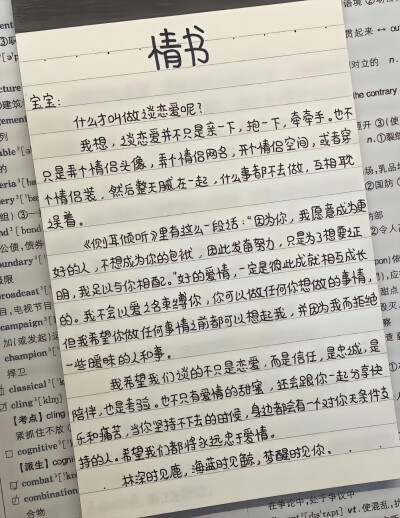 情书
宝宝：
什么才叫做谈恋爱呢？
我想，谈恋爱并不只是亲一下，抱一下，牵牵手。也不
只是弄个情侣头像，弄个情侣网名，开个情侣空间，或者穿
个情侣装，然后整天腻在一起，什么事都不去做，互相耽
误着。
《侧耳倾听》里有这么一段话：“因为你，我愿意成为更
好的人，不想成为你的包袱，因此发奋努力，只是为了想要证
明，我足以与你相配。”好的爱情，一定是彼此成就相与成长
的。我不会以爱之名束缚你，你可以做任何你想做的事情，
但我希望你做任何事情之前都可以想起我，并因为我而拒绝
一些暧昧的人和事。
我希望我们谈的不只是恋爱，而是信任，是忠诚，是
陪伴，也是考验。也不只有爱情的甜蜜，还会跟你一起分享快
乐和痛苦，当你坚持不下去的时候，身边都会有一个对你无条件支
持的人。希望我们都将永远忠于爱情。
林深时见鹿，海蓝时见鲸，梦醒时见你。
the contrary
campaign
champion
捍卫
classical
cling
【考点】cling
紧抓住不放
cognitive
【派生】
combat
combination
合物
在争论中，处于争议中
vt. 使混乱，扰